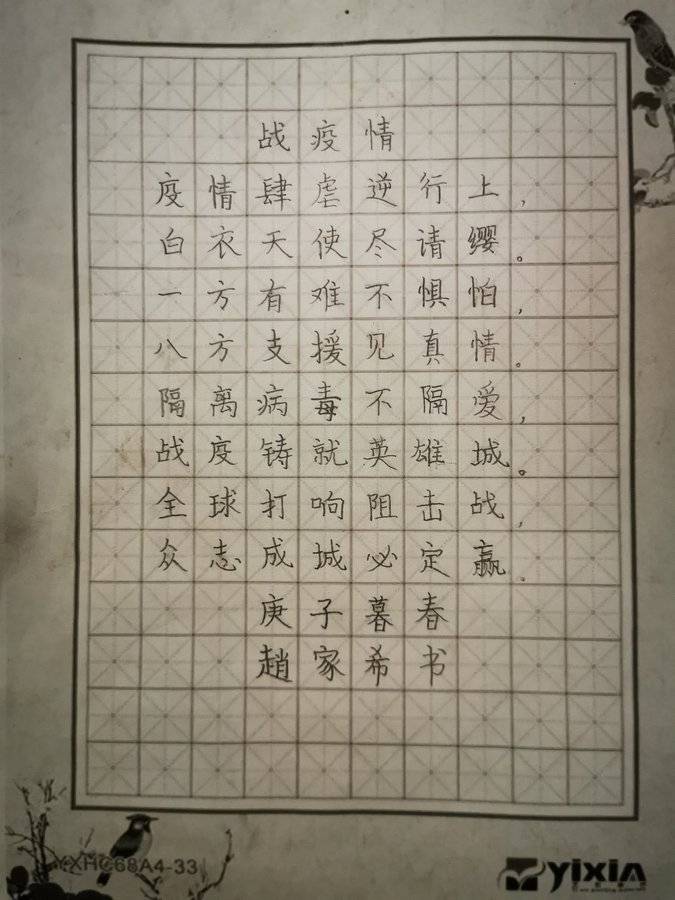 战疫情
疫情肆虐逆行上，
白衣天使尽请缨。
一方有难不惧怕，
八方支援见真情。
隔离病毒不隔爱，
战疫铸就英雄城。
全球打响阻击战，
众志成城必定赢。
庚子暮春
趙家希书
YXHC68A4-33
yixin